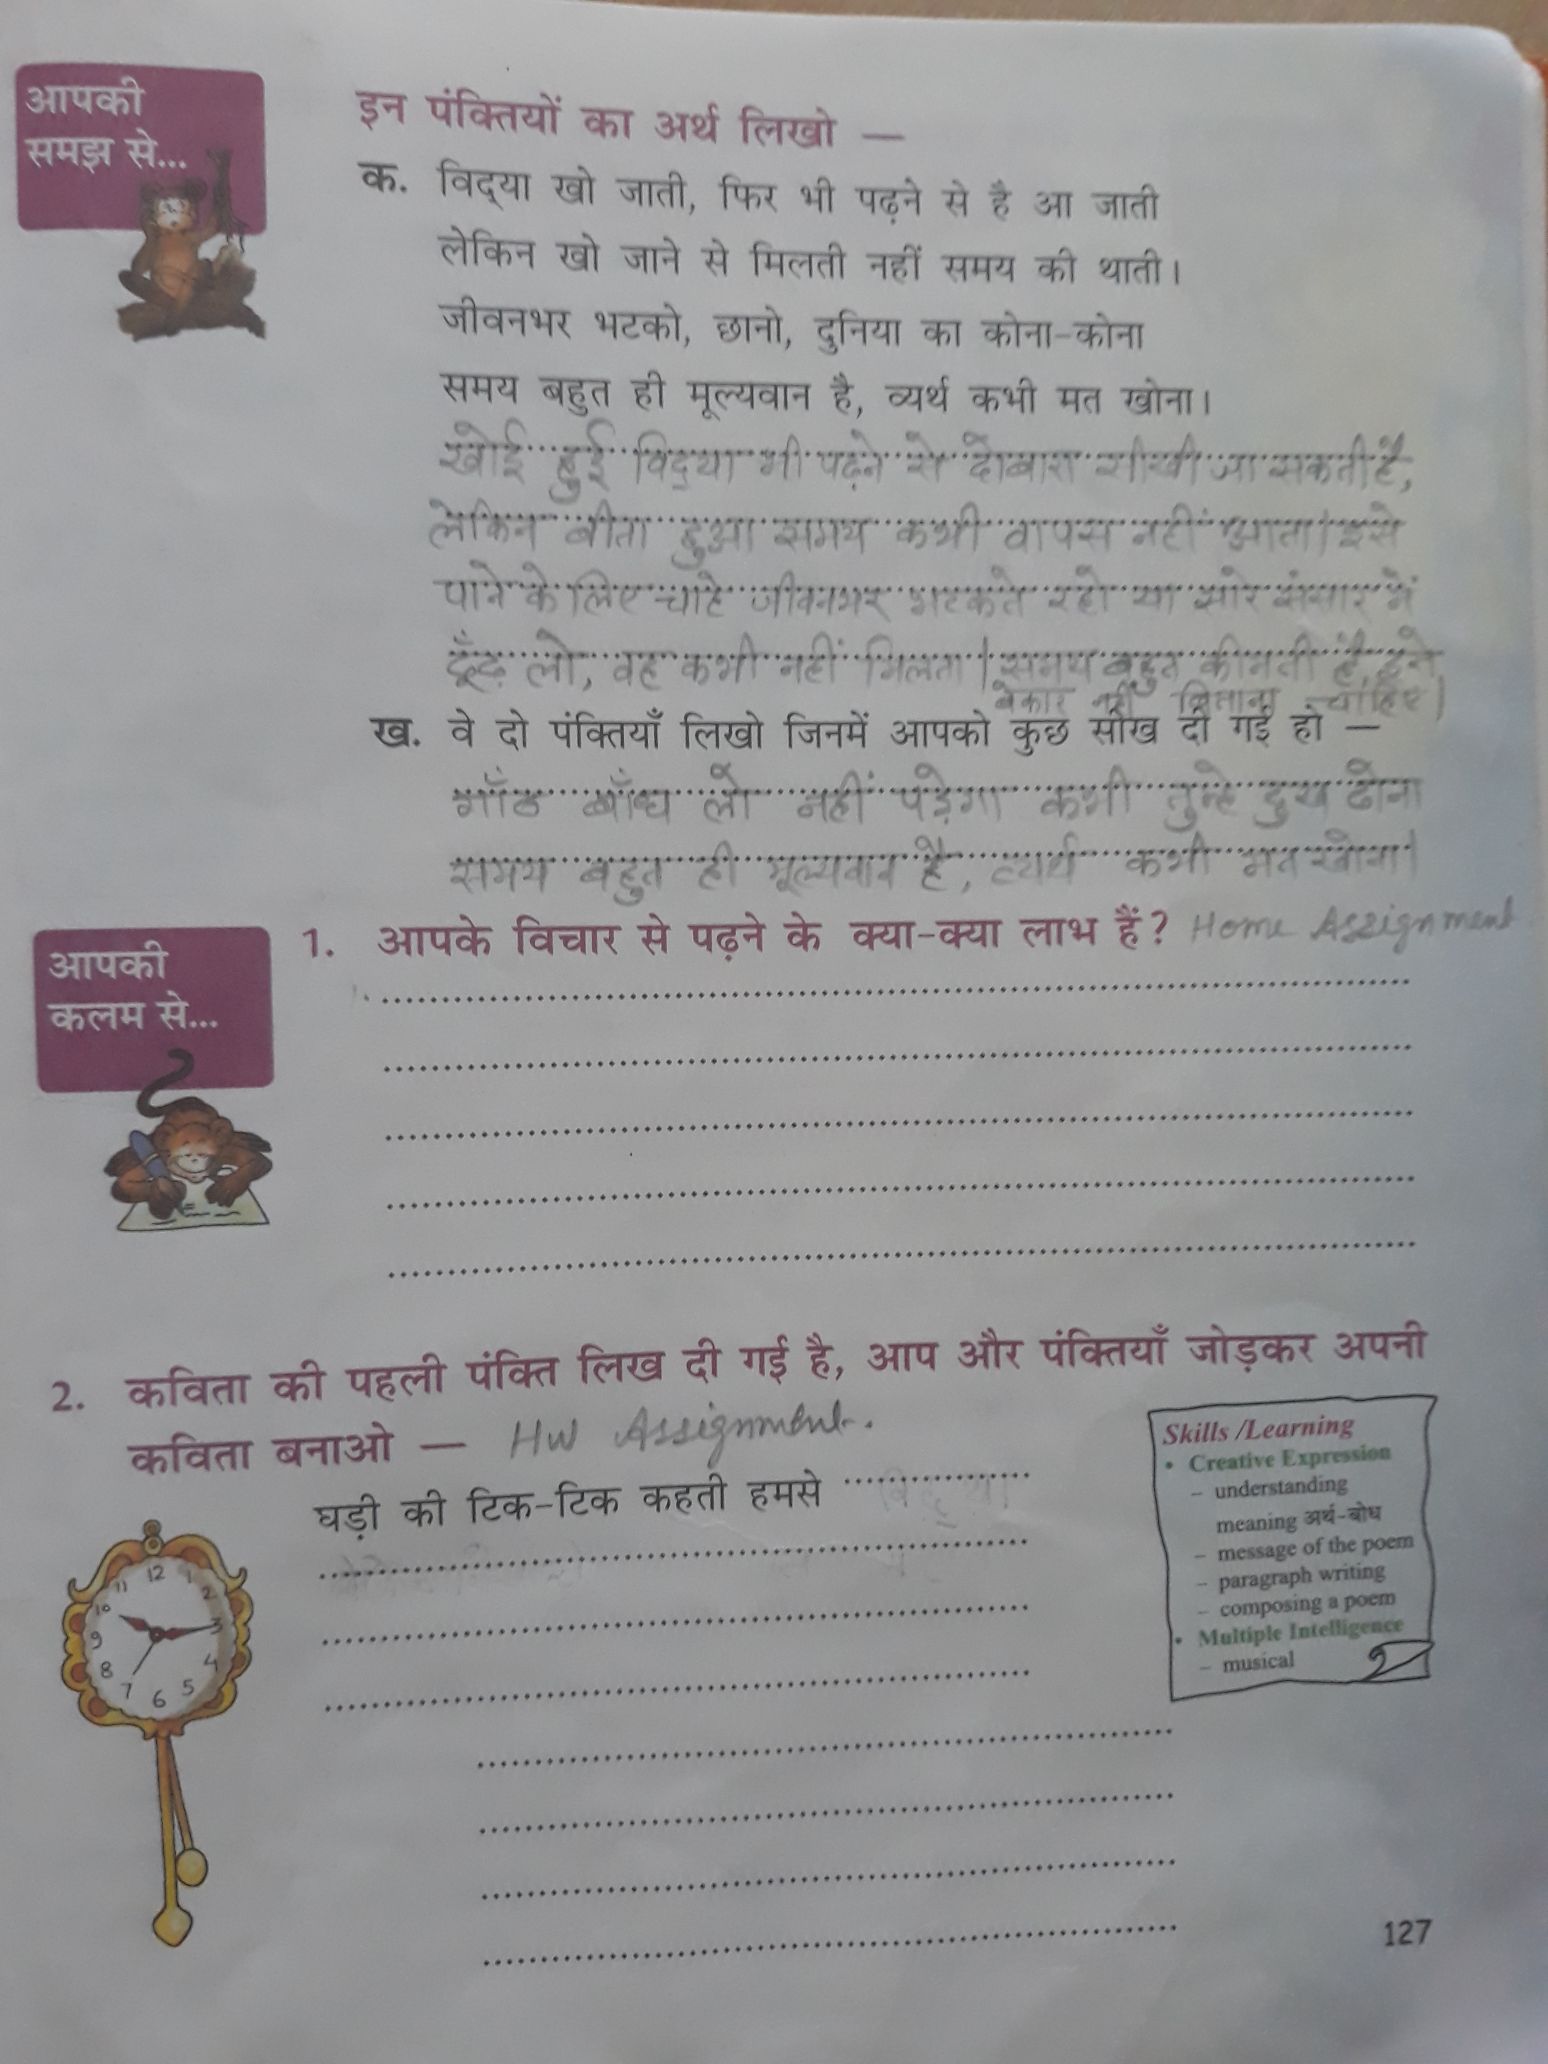 आपकी
समझ से...
इन पंक्तियों का अर्थ लिखो —
क. विद्‌या खो जाती, फिर भी पढ़ने से है आ जाती
लेकिन खो जाने से मिलती नहीं समय की थाती।
जीवनभर भटको, छानो, दुनिया का कोना-कोना
समय बहुत ही मूल्यवान है, व्यर्थ कभी मत खोना।
खोई हुई विद्‌या भी पढ़ने से दोबारा सीखी जा सकती है,
लेकिन बीता हुआ समय कभी वापस नहीं आता। इसे
पाने के लिए चाहे जीवनभर भटकते रहो या सारे संसार में
ढूँढ़ लो, वह कभी नहीं मिलता। समय बहुत कीमती है, इसे
बेकार नहीं बिताना चाहिए।
ख. वे दो पंक्तियाँ लिखो जिनमें आपको कुछ सीख दी गई हो —
गाँठ बाँध लो नहीं पड़ेगा कभी तुम्हे दुख ढोना
समय बहुत ही मूल्यवान है, व्यर्थ कभी मत खोना।
आपकी
कलम से...
1. आपके विचार से पढ़ने के क्या-क्या लाभ हैं? Home Assignment
2. कविता की पहली पंक्ति लिख दी गई है, आप और पंक्तियाँ जोड़कर अपनी
कविता बनाओ — HW Assignment.
घड़ी की टिक-टिक कहती हमसे
12
11 1
10 2
9 3
8 4
7 6 5
Skills /Learning
• Creative Expression
– understanding
meaning अर्थ-बोध
– message of the poem
– paragraph writing
– composing a poem
• Multiple Intelligence
– musical
127